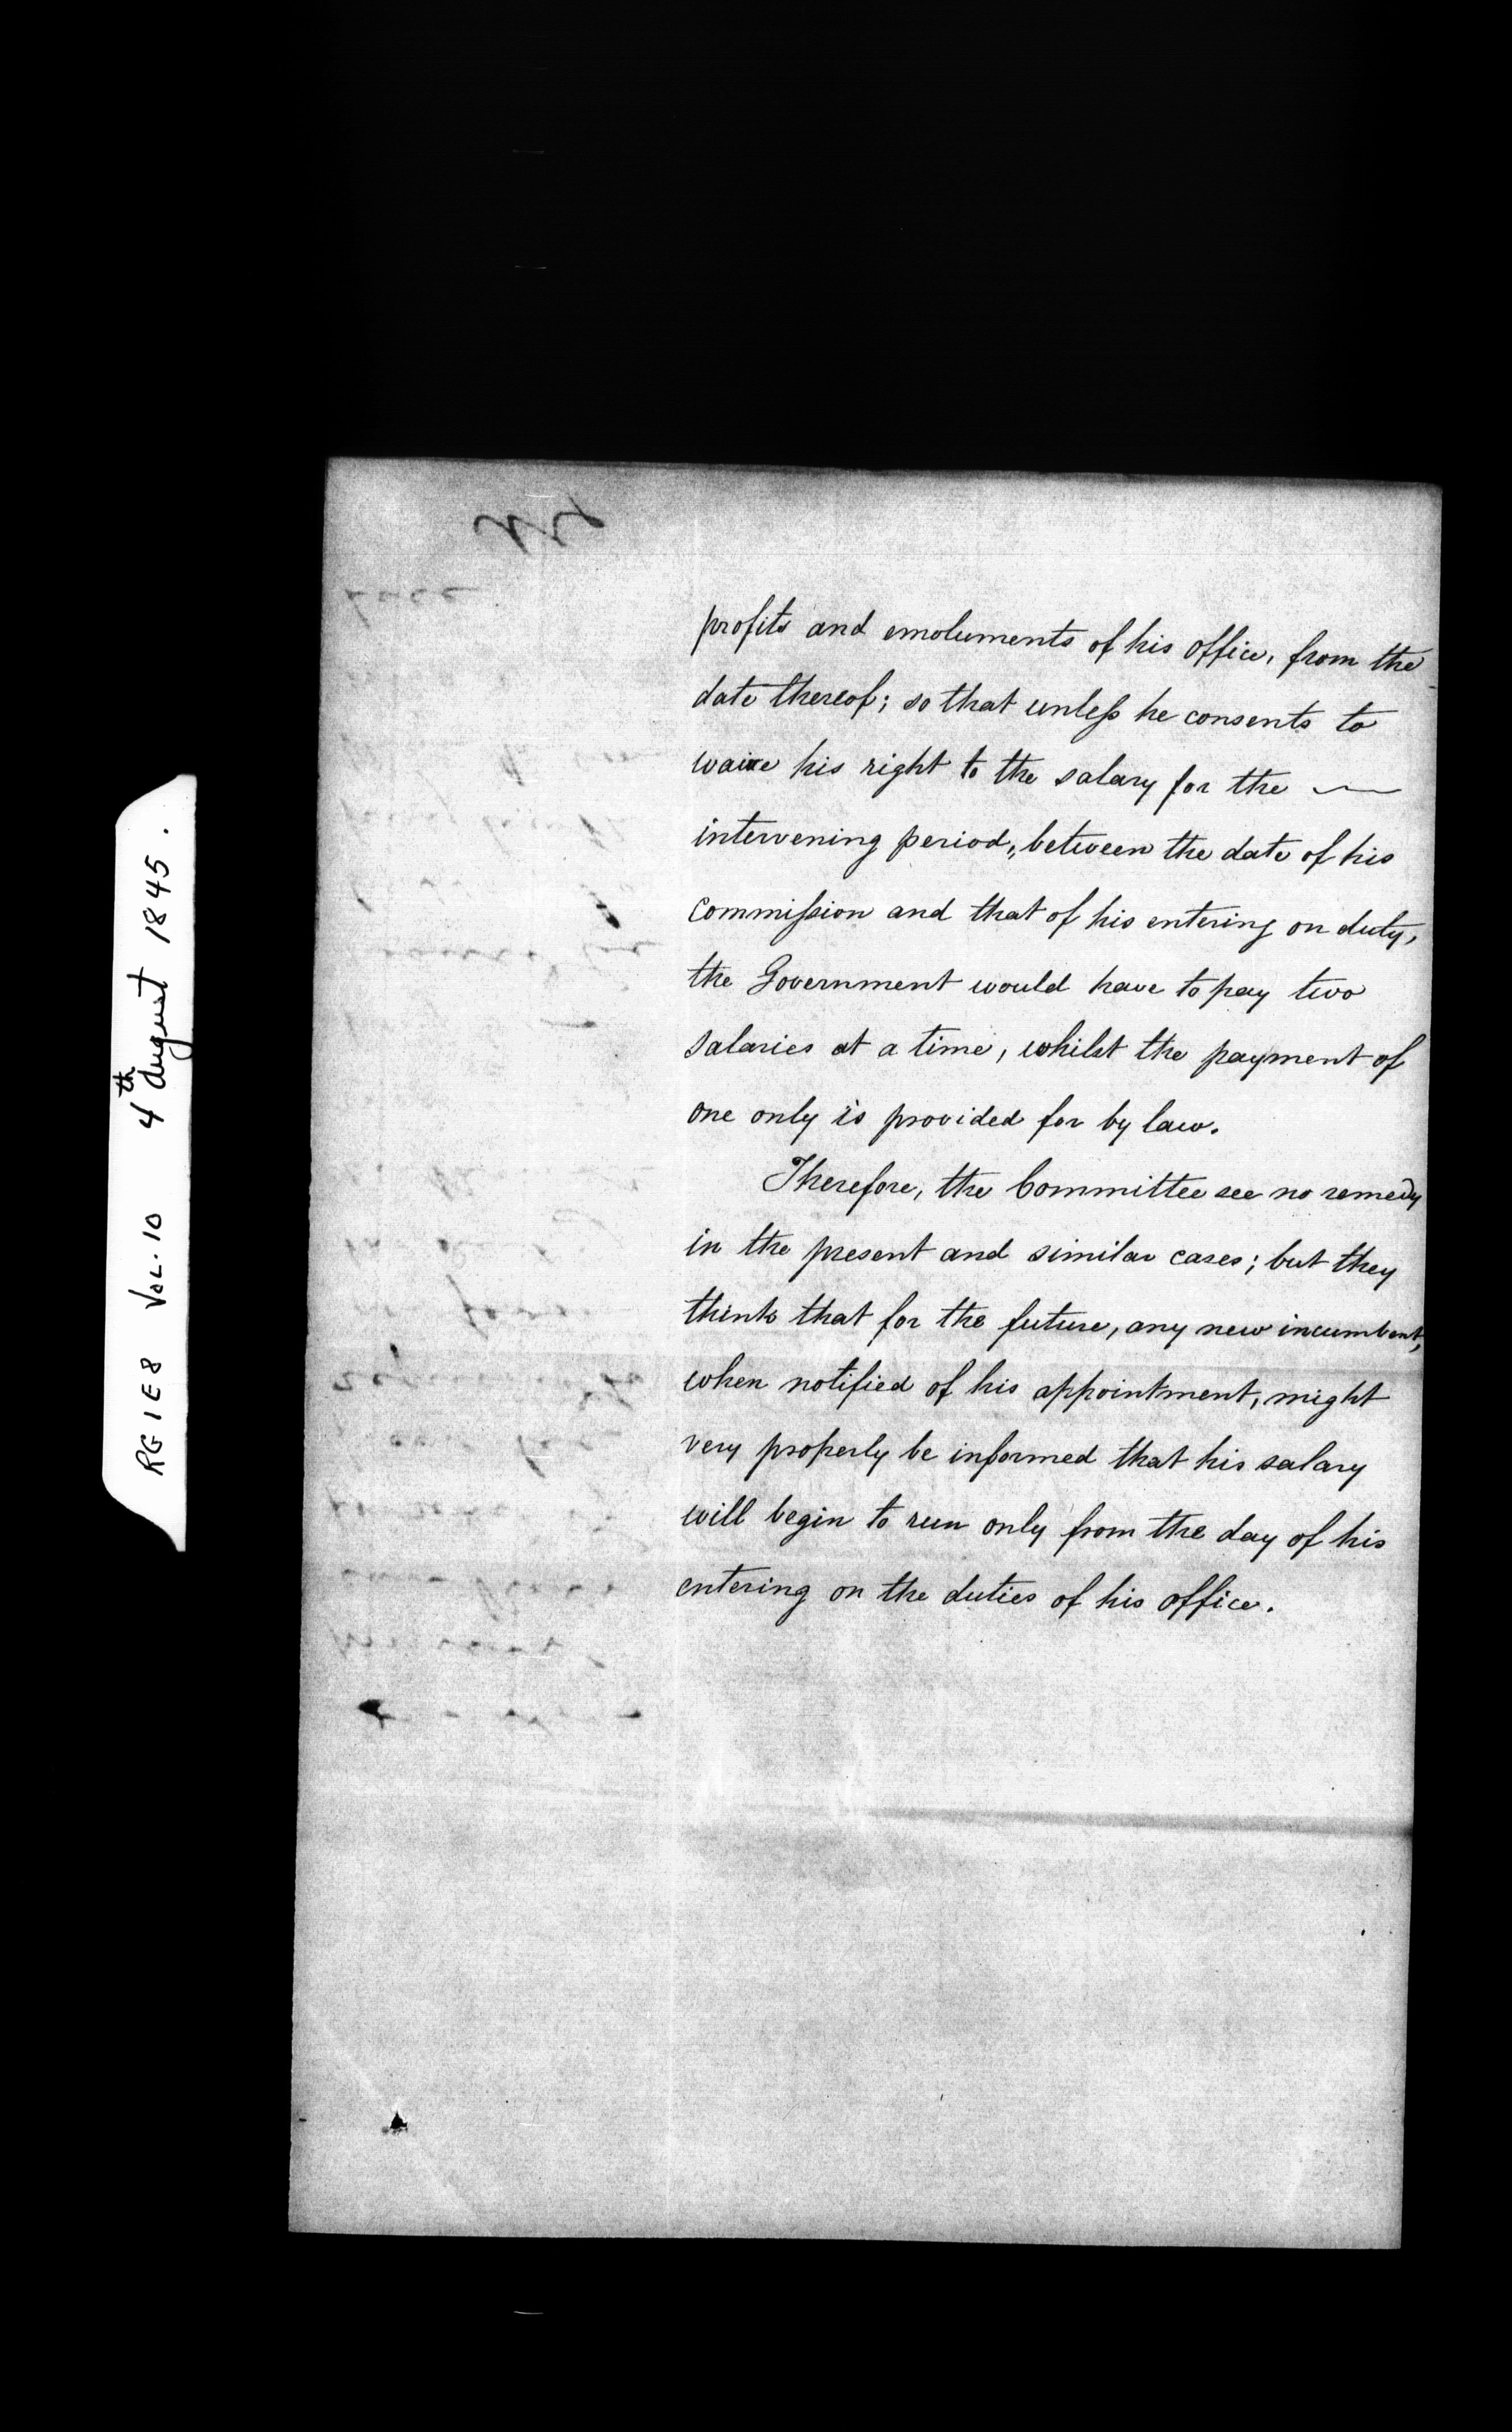 RG 1 E8 VOL. 10 4th August 1845.
profits and emoluments of his office, from the
date thereof; so that unless he consents to
waive his right to the salary for the —
intervening period, between the date of his
Commission and that of his entering on duty,
the Government would have to pay two
salaries at a time, whilst the payment of
one only is provided for by law.
Therefore, the Committee see no remedy
in the present and similar cases; but they
think that for the future, any new incumbent,
when notified of his appointment, might
very properly be informed that his salary
will begin to run only from the day of his
entering on the duties of his office.